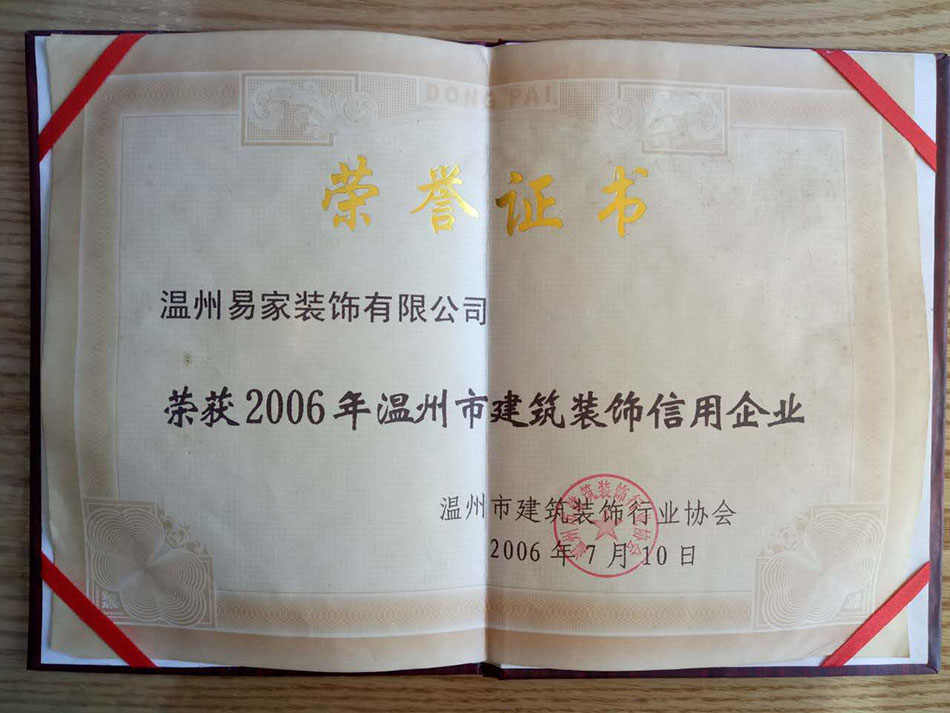 DONG PAI
荣誉证书
温州易家装饰有限公司
荣获2006年温州市建筑装饰信用企业
温州市建筑装饰行业协会
2006年7月10日
温州市建筑装饰行业协会